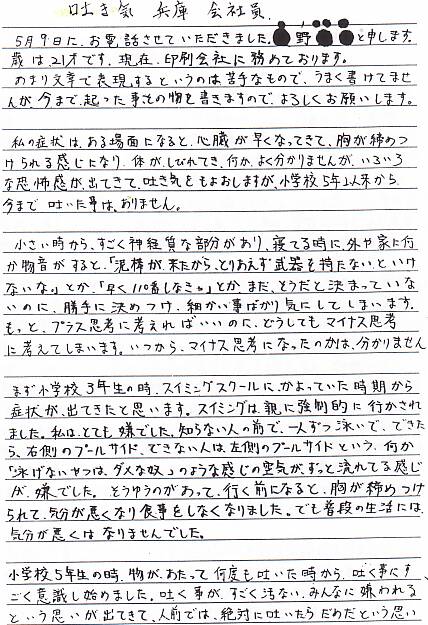 吐き気 兵庫 会社員
5月9日に、お電話させていただきました。野と申します。
歳は21才です。現在、印刷会社に務めております。
あまり文章で表現するというのは苦手なもので、うまく書けてませ
んが、今まで、起った事その物を書きますので、よろしくお願いします。
私の症状は、ある場面になると、心臓が早くなってきて、胸が締めつ
けられる感じになり、体が、しびれてき、何か、よく分かりませんが、いろいろ
な恐怖感が出てきて、吐き気をもよおしますが、小学校5年以来から
今まで吐いた事は、ありません。
小さい時から、すごく神経質な部分があり、寝てる時に、外や家に何
か物音がすると、「泥棒が、来たから、とりあえず武器を持たないといけ
ないな」とか、「早く110番しなきゃ」とか、また、そうだと決まっていな
いのに、勝手に決めつけ、細かい事ばかり気にしてしまいます。
もっと、プラス思考に考えればいいのに、どうしてもマイナス思考
に考えてしまいます。いつから、マイナス思考になったのかは、分かりません
まず小学校3年生の時、スイミングスクールに、かよっていた時期から
症状が、出てきたと思います。スイミングは、親に強制的に行かされ
ました。私は、とても嫌でした。知らない人の前で、一人ずつ泳いで、できた
ら、右側のプールサイド、できない人は、左側のプールサイドという、何か
「泳げないやつは、ダメな奴」のような感じの空気が、ずっと流れてる感じ
が、嫌でした。そうゆうのがあって、行く前になると、胸が締めつけ
られて、気分が悪くなり食事をしなくなりました。でも普段の生活には、
気分が悪くはなりませんでした。
小学校5年生の時、物が、あたって何度も吐いた時から、吐く事にす
ごく意識し始めました。吐く事が、すごく汚ない、みんなに嫌われる
という思いが出てきて、人前では、絶対に吐いたらだめだという思い